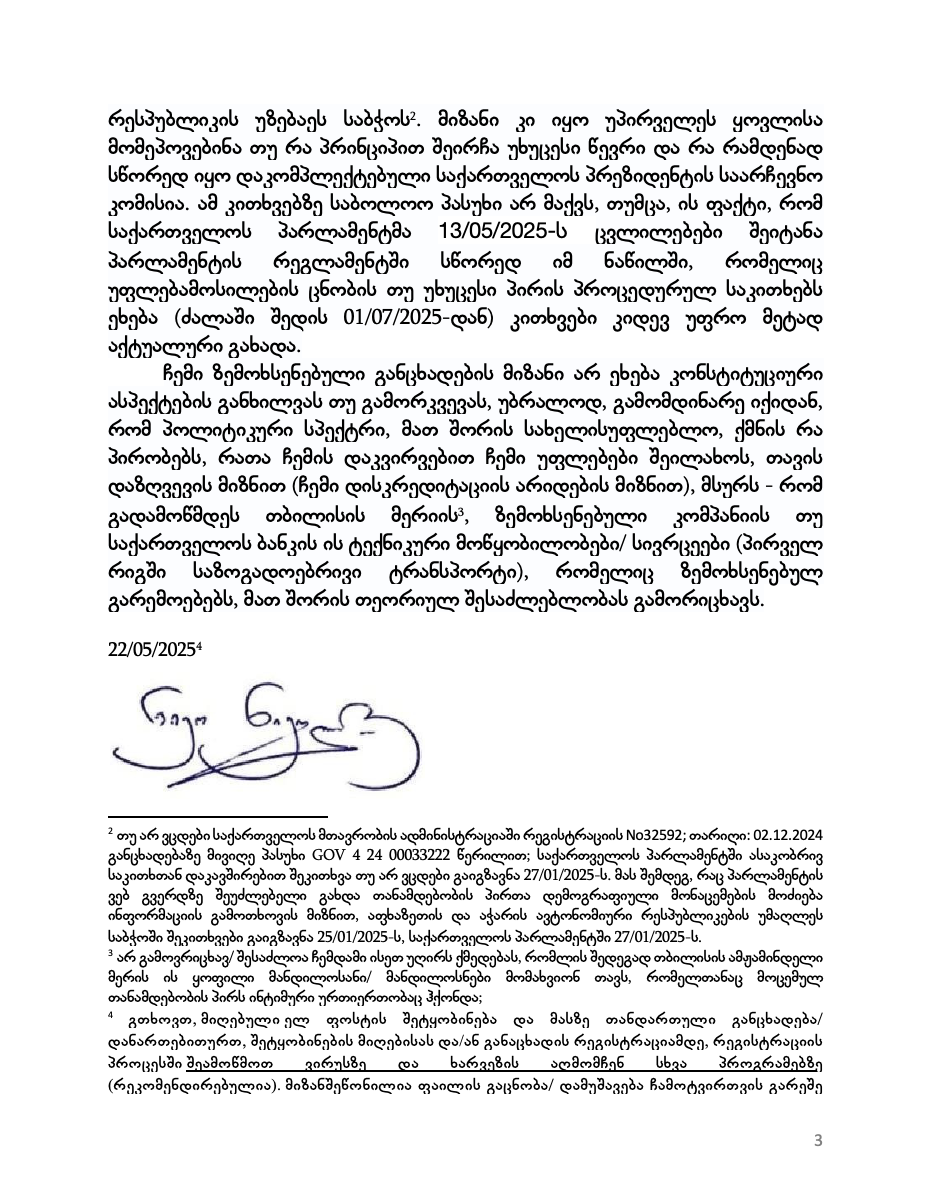 რესპუბლიკის უზებაეს საბჭოს². მიზანი კი იყო უპირველეს ყოვლისა
მომეპოვებინა თუ რა პრინციპით შეირჩა უხუცესი წევრი და რა რამდენად
სწორედ იყო დაკომპლექტებული საქართველოს პრეზიდენტის საარჩევნო
კომისია. ამ კითხვებზე საბოლოო პასუხი არ მაქვს, თუმცა, ის ფაქტი, რომ
საქართველოს პარლამენტმა 13/05/2025-ს ცვლილებები შეიტანა
პარლამენტის რეგლამენტში სწორედ იმ ნაწილში, რომელიც
უფლებამოსილების ცნობის თუ უხუცესი პირის პროცედურულ საკითხებს
ეხება (ძალაში შედის 01/07/2025-დან) კითხვები კიდევ უფრო მეტად
აქტუალური გახადა.
ჩემი ზემოხსენებული განცხადების მიზანი არ ეხება კონსტიტუციური
ასპექტების განხილვას თუ გამორკვევას, უბრალოდ, გამომდინარე იქიდან,
რომ პოლიტიკური სპექტრი, მათ შორის სახელისუფლებლო, ქმნის რა
პირობებს, რათა ჩემის დაკვირვებით ჩემი უფლებები შეილახოს, თავის
დაზღვევის მიზნით (ჩემი დისკრედიტაციის არიდების მიზნით), მსურს - რომ
გადამოწმდეს თბილისის მერიის³, ზემოხსენებული კომპანიის თუ
საქართველოს ბანკის ის ტექნიკური მოწყობილობები/ სივრცეები (პირველ
რიგში საზოგადოებრივი ტრანსპორტი), რომელიც ზემოხსენებულ
გარემოებებს, მათ შორის თეორიულ შესაძლებლობას გამორიცხავს.
22/05/2025⁴
² თუ არ ვცდები საქართველოს მთავრობის ადმინისტრაციაში რეგისტრაციის No32592; თარიღი: 02.12.2024
განცხადებაზე მივიღე პასუხი GOV 4 24 00033222 წერილით; საქართველოს პარლამენტში ასაკობრივ
საკითხთან დაკავშირებით შეკითხვა თუ არ ვცდები გაიგზავნა 27/01/2025-ს. მას შემდეგ, რაც პარლამენტის
ვებ გვერდზე შეუძლებელი გახდა თანამდებობის პირთა დემოგრაფიული მონაცემების მოძიება
ინფორმაციის გამოთხოვის მიზნით, აფხაზეთის და აჭარის ავტონომიური რესპუბლიკების უმაღლეს
საბჭოში შეკითხვები გაიგზავნა 25/01/2025-ს, საქართველოს პარლამენტში 27/01/2025-ს.
³ არ გამოვრიცხავ/ შესაძლოა ჩემდამი ისეთ უღირს ქმედებას, რომლის შედეგად თბილისის ამჟამინდელი
მერის ის ყოფილი მანდილოსანი/ მანდილოსნები მომახვიონ თავს, რომელთანაც მოცემულ
თანამდებობის პირს ინტიმური ურთიერთობაც ჰქონდა;
⁴ გთხოვთ, მიღებული ელ ფოსტის შეტყობინება და მასზე თანდართული განცხადება/
დანართებითურთ, შეტყობინების მიღებისას და/ან განაცხადის რეგისტრაციამდე, რეგისტრაციის
პროცესში შეამოწმოთ ვირუსზე და ხარვეზის აღმომჩენ სხვა პროგრამებზე
(რეკომენდირებულია). მიზანშეწონილია ფაილის გაცნობა/ დამუშავება ჩამოტვირთვის გარეშე
3